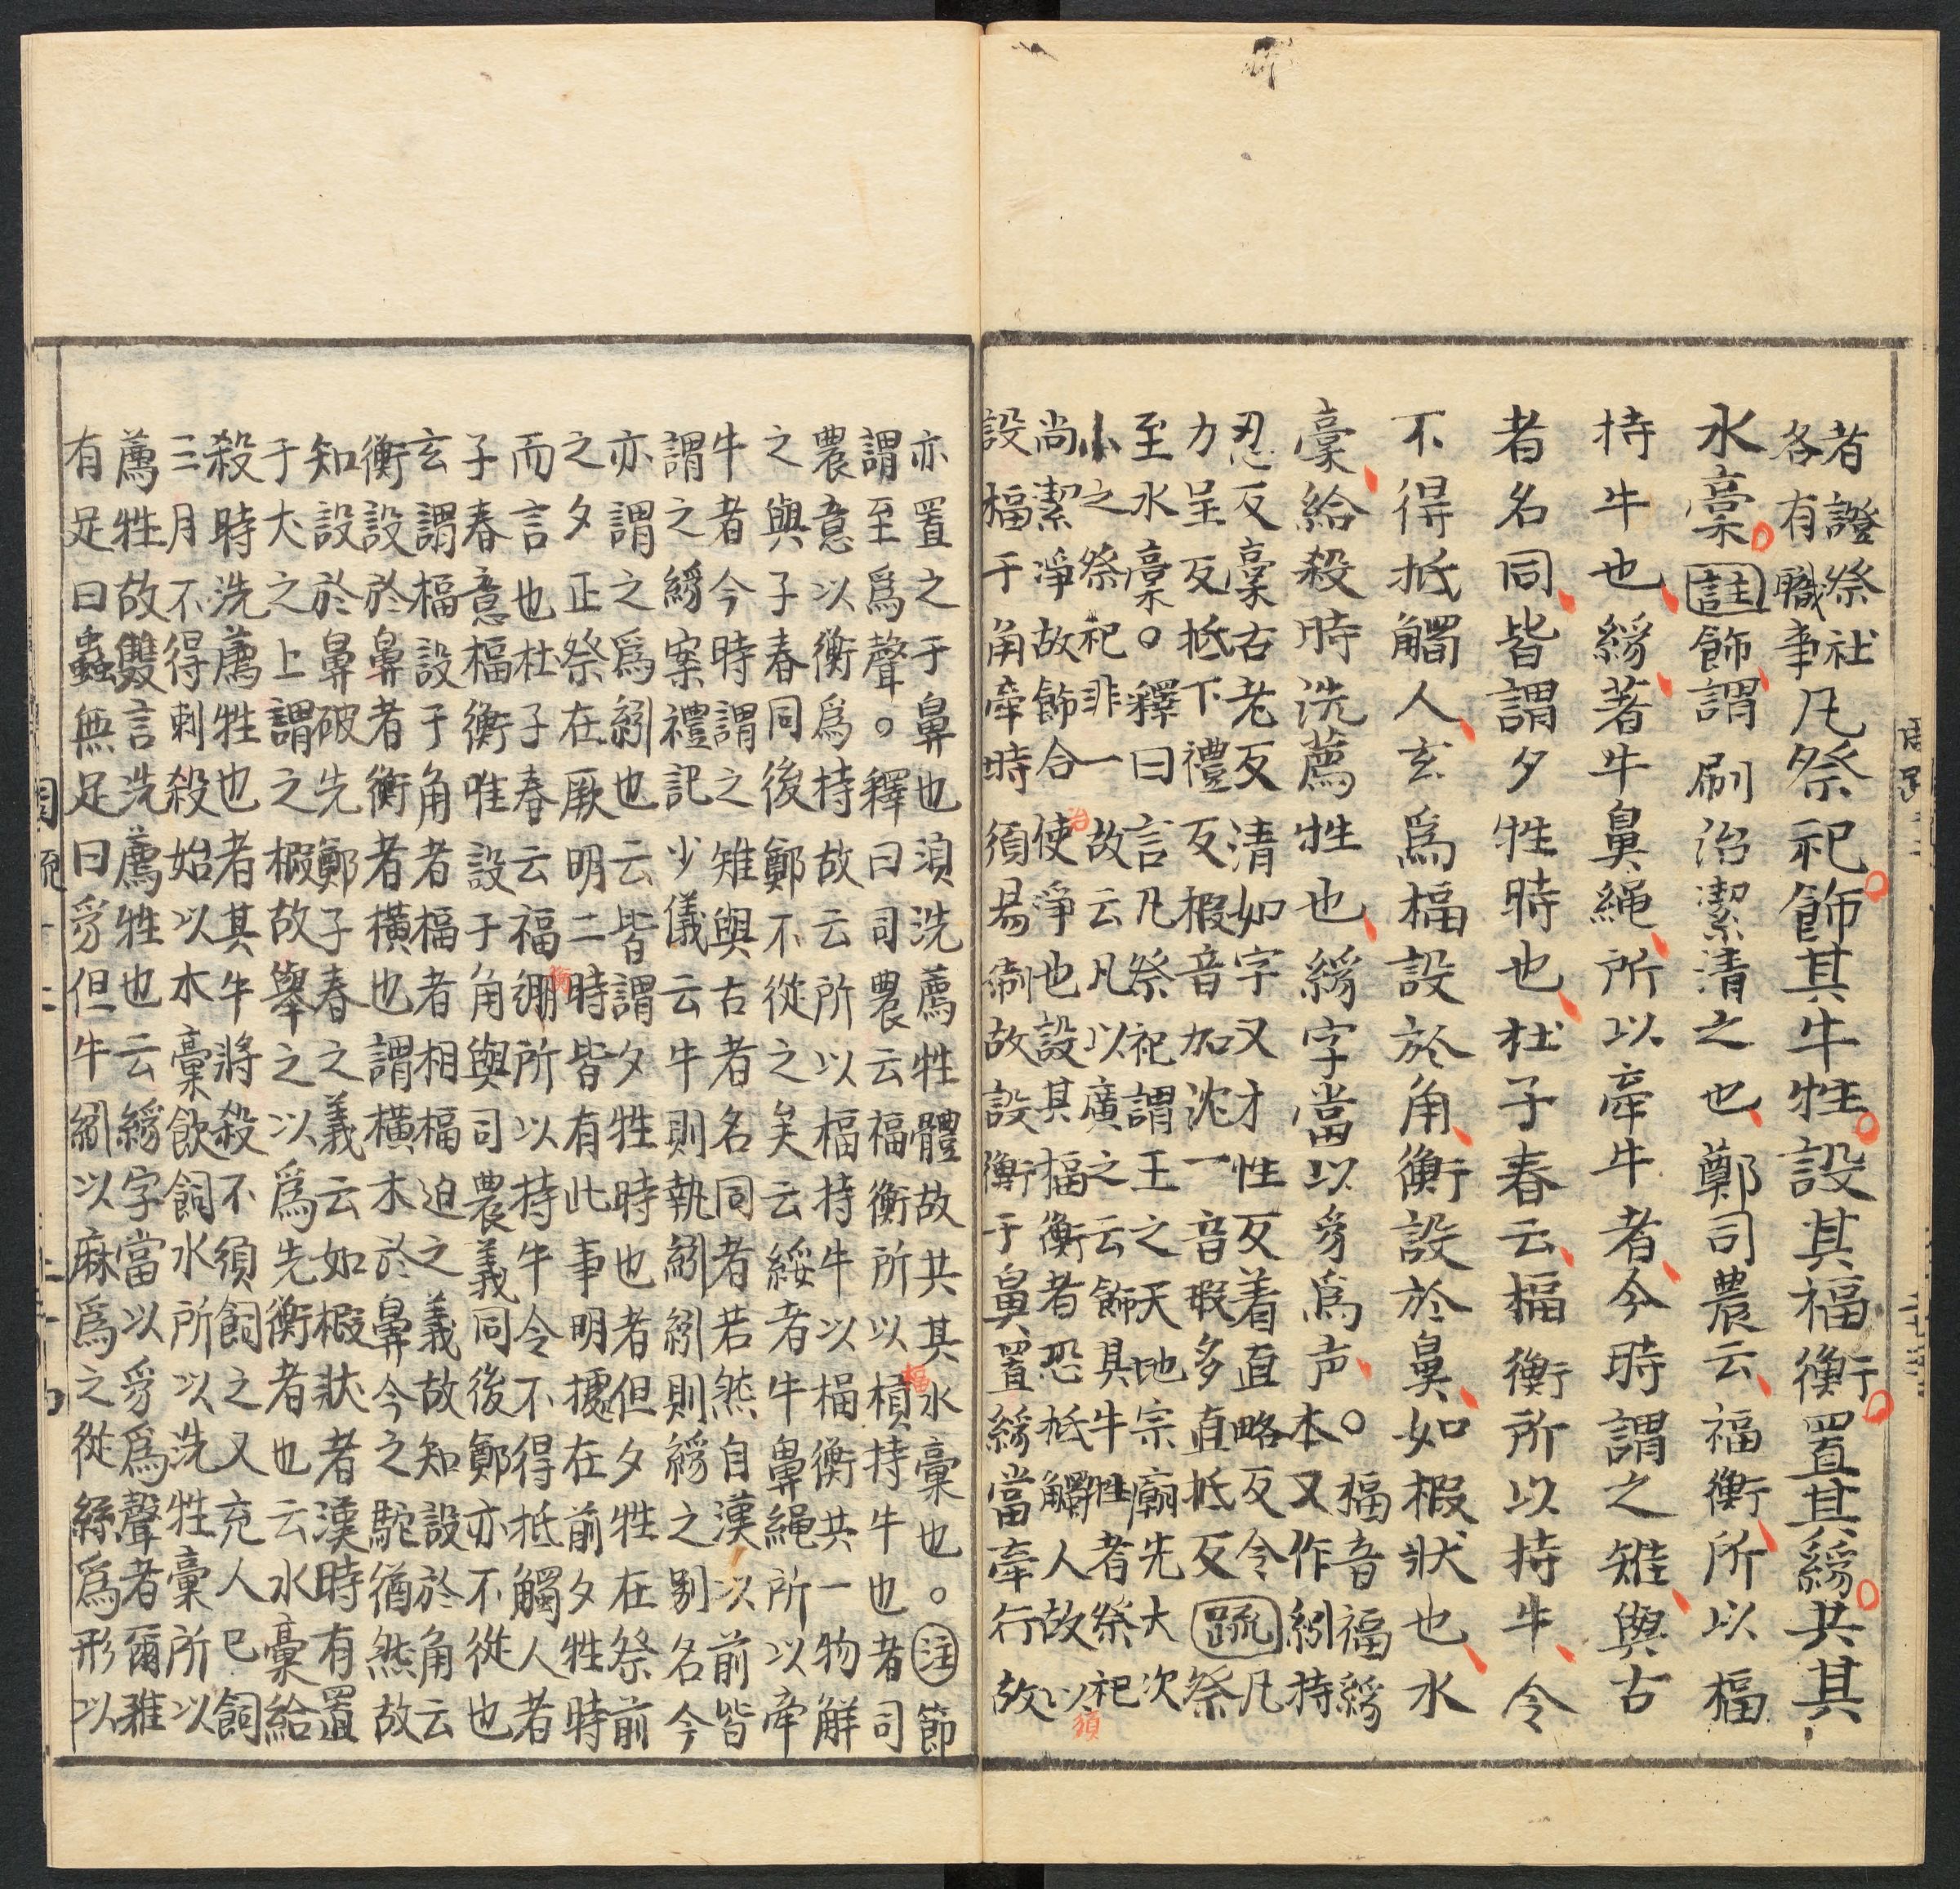 者證祭社
各有職事
凡祭祀飾其牛牲設其福衡置其絼共其
水稾註飾謂刷治潔清之也鄭司農云福衡所以福
持牛也絼著牛鼻繩所以牽牛者今時謂之雉與古
者名同皆謂夕牲時也杜子春云福衡所以持牛令
不得抵觸人玄爲福設於角衡設於鼻如椵狀也水
稾給殺時洗薦牲也絼字當以豸爲声
○福音福絼
本又作紖持
忍反稾古老反清如字又才性反着直略反令
力呈反抵下禮反椵音加沈一音瑕多直抵反
疏
凡
祭
至水稾○釋曰言凡祭祀謂王之天地宗廟先大次
小之祭祀非一故云凡以廣之云飾具牛牲者祭祀
尚潔淨故飾合使淨也設其福衡者恐抵觸人故以
設福于角牽時須易制故設衡于鼻置絼當牽行故
治
須
亦置之于鼻也湏洗薦牲體故共其水稾也○注節
謂至爲聲○釋曰司農云福衡所以樌持牛也者司
福
農意以衡爲持故云所以福持牛以福衡共一物解
之與子春同後鄭不從之矣云綏者牛鼻繩所以牽
牛者今時謂之雉與古者名同者若然自漢以前皆
謂之絼案禮記少儀云牛則執紖紖則絼之别名今
亦謂之爲紖也云皆謂夕牲時也者但夕牲在祭前
之夕正祭在厥明二時皆有此事明據在前夕牲時
而言也杜子春云福綳所以持牛令不得抵觸人者
衡
子春意福衡唯設于角與司農義同後鄭亦不從也
玄謂福設于角者福者相福迫之義故知設於角云
衡設於鼻者衡者橫也謂橫木於鼻今之駝猶然故
知設於鼻破先鄭子春之義云如椵狀者漢時有置
于犬之上謂之椵故舉之以爲先衡者也云水稾給
殺時洗薦牲也者其牛將殺不須飼之又充人已飼
三月不得刺殺始以水稾飲飼水所以洗牲稾所以
薦牲故雙言洗薦牲也云絼字當以豸爲聲者爾雅
有足曰蟲無足曰豸但牛紖以麻爲之從絲爲形以